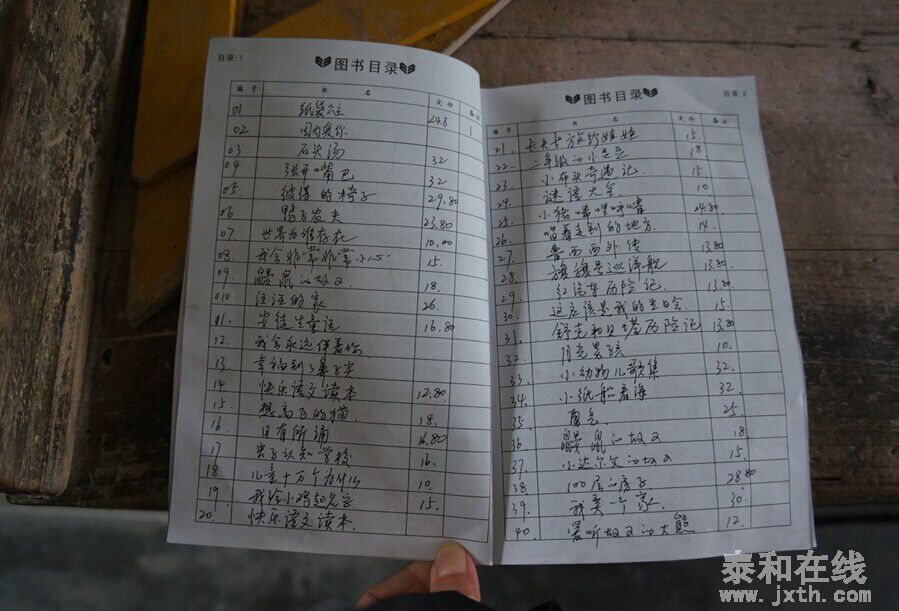 目录:1
图书目录
编号 书名 定价 备注
01 纸袋公主 24.8 1
02 因为爱你
03 石头汤 32
04 张开嘴巴 32
05 彼得的椅子 29.80
06 鸭子农夫 23.80
07 世界为谁存在 10.00
08 我会非常非常小心 15.
09 鼹鼠的故事 18.
010. 汪汪的家 26.
11. 安徒生童话 16.80
12. 我会永远伴着你
13. 幸福到了鼻子尖
14 快乐语文读本 12.80
15. 想高飞的猫 18.
16. 且有所诵 16.80
17 虫子认知学校 16.
18. 儿童十万个为什么 10.
19. 我给小鸡起名字 15.
20. 快乐语文读本.
图书目录
目录:2
编号 书名 定价 备注
21. 卡夫卡旅行娃娃 15.
22. 二年级的小豆豆 18.
23. 小布头奇遇记. 15.
24. 谜语大全 10
25. 小猪唏哩呼噜 24.80
26. 唱着走到的地方. 14.
27. 鲁西西外传 13.80
28. 旗旗号巡洋舰 13.80
29. 红汽车历险记. 13.80
30. 这应该是我的生日会 15.
31. 舒克和贝塔历险记 13.80
32. 阴光男孩 10.
33. 小动物儿歌集 32.
34. 小纸船看海 32.
35. 勇气 25.
36 鼹鼠的故事 18
37. 小达尔文的故事 15.
38. 100层的房子 28.80
39. 我要一个家. 30.
40. 爱听故事的大熊 12.
泰和在线
www.jxth.com